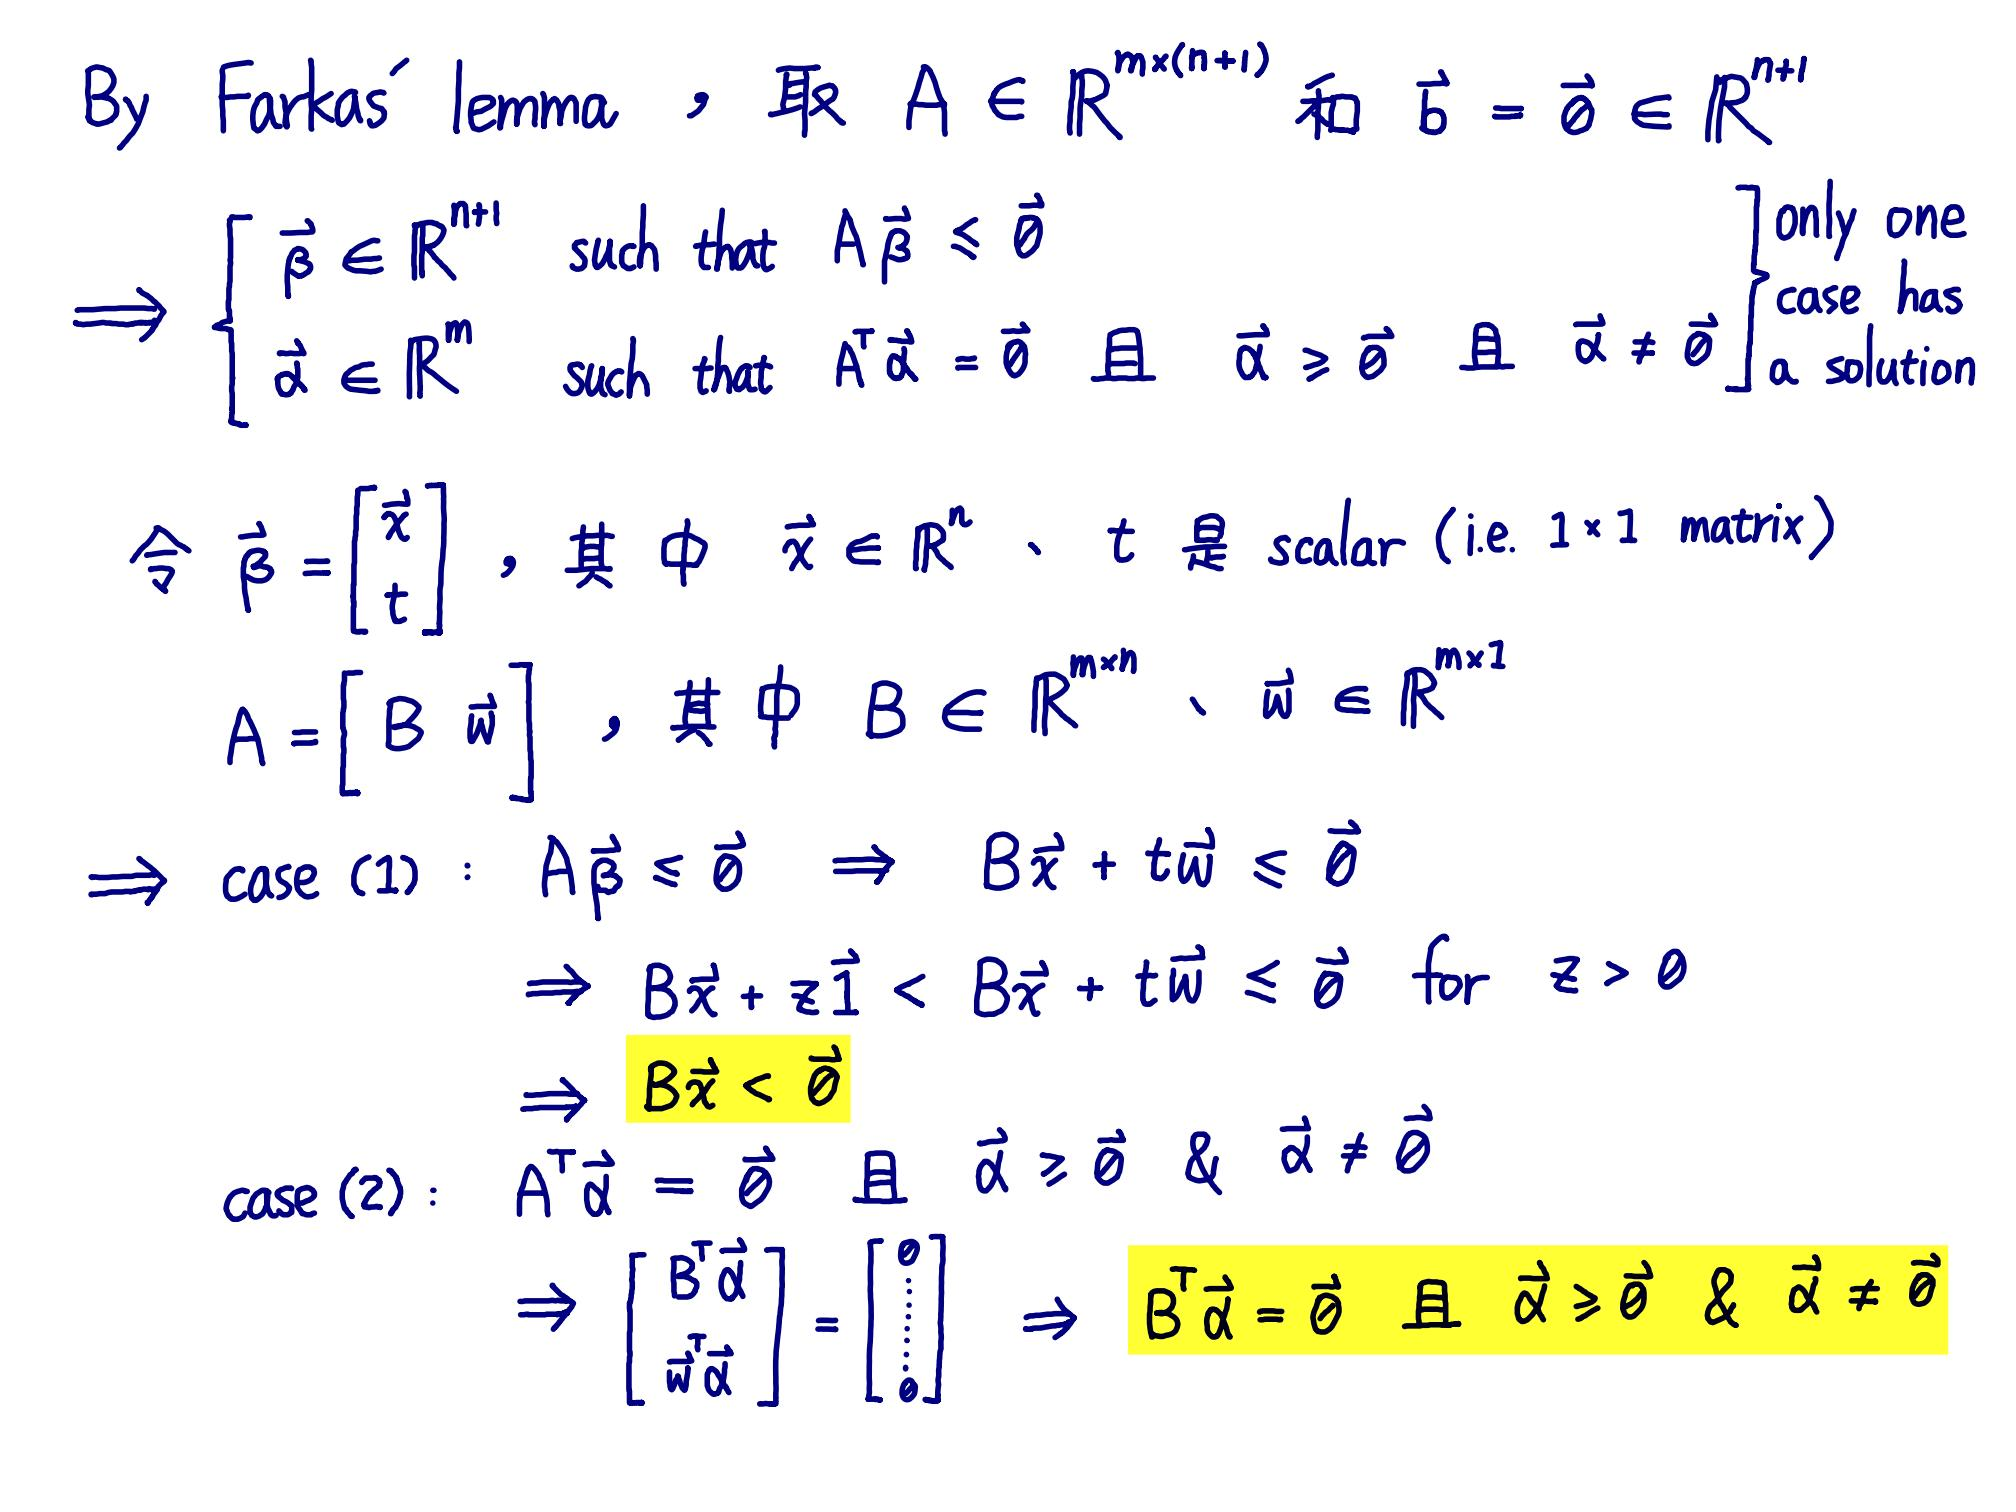 By Farkas' lemma , 取 A ∈ ℝ^{m×(n+1)} 和 \vec{b} = \vec{0} ∈ ℝ^{n+1}
⟹ { \vec{β} ∈ ℝ^{n+1} such that A\vec{β} ⩽ \vec{0}
\vec{α} ∈ ℝ^{m} such that A^T\vec{α} = \vec{0} 且 \vec{α} ⩾ \vec{0} 且 \vec{α} ≠ \vec{0} }
only one
case has
a solution
令 \vec{β} = [ \vec{x} ; t ] , 其中 \vec{x} ∈ ℝ^n 、 t 是 scalar (i.e. 1×1 matrix)
A = [ B \vec{w} ] , 其中 B ∈ ℝ^{m×n} 、 \vec{w} ∈ ℝ^{m×1}
⟹ case (1) : A\vec{β} ⩽ \vec{0} ⟹ B\vec{x} + t\vec{w} ⩽ \vec{0}
⟹ B\vec{x} + z\vec{1} < B\vec{x} + t\vec{w} ⩽ \vec{0} for z > 0
⟹ B\vec{x} < \vec{0}
case (2) : A^T\vec{α} = \vec{0} 且 \vec{α} ⩾ \vec{0} & \vec{α} ≠ \vec{0}
⟹ [ B^T\vec{α} ; \vec{w}^T\vec{α} ] = [ 0 ⋮ 0 ] ⟹ B^T\vec{α} = \vec{0} 且 \vec{α} ⩾ \vec{0} & \vec{α} ≠ \vec{0}